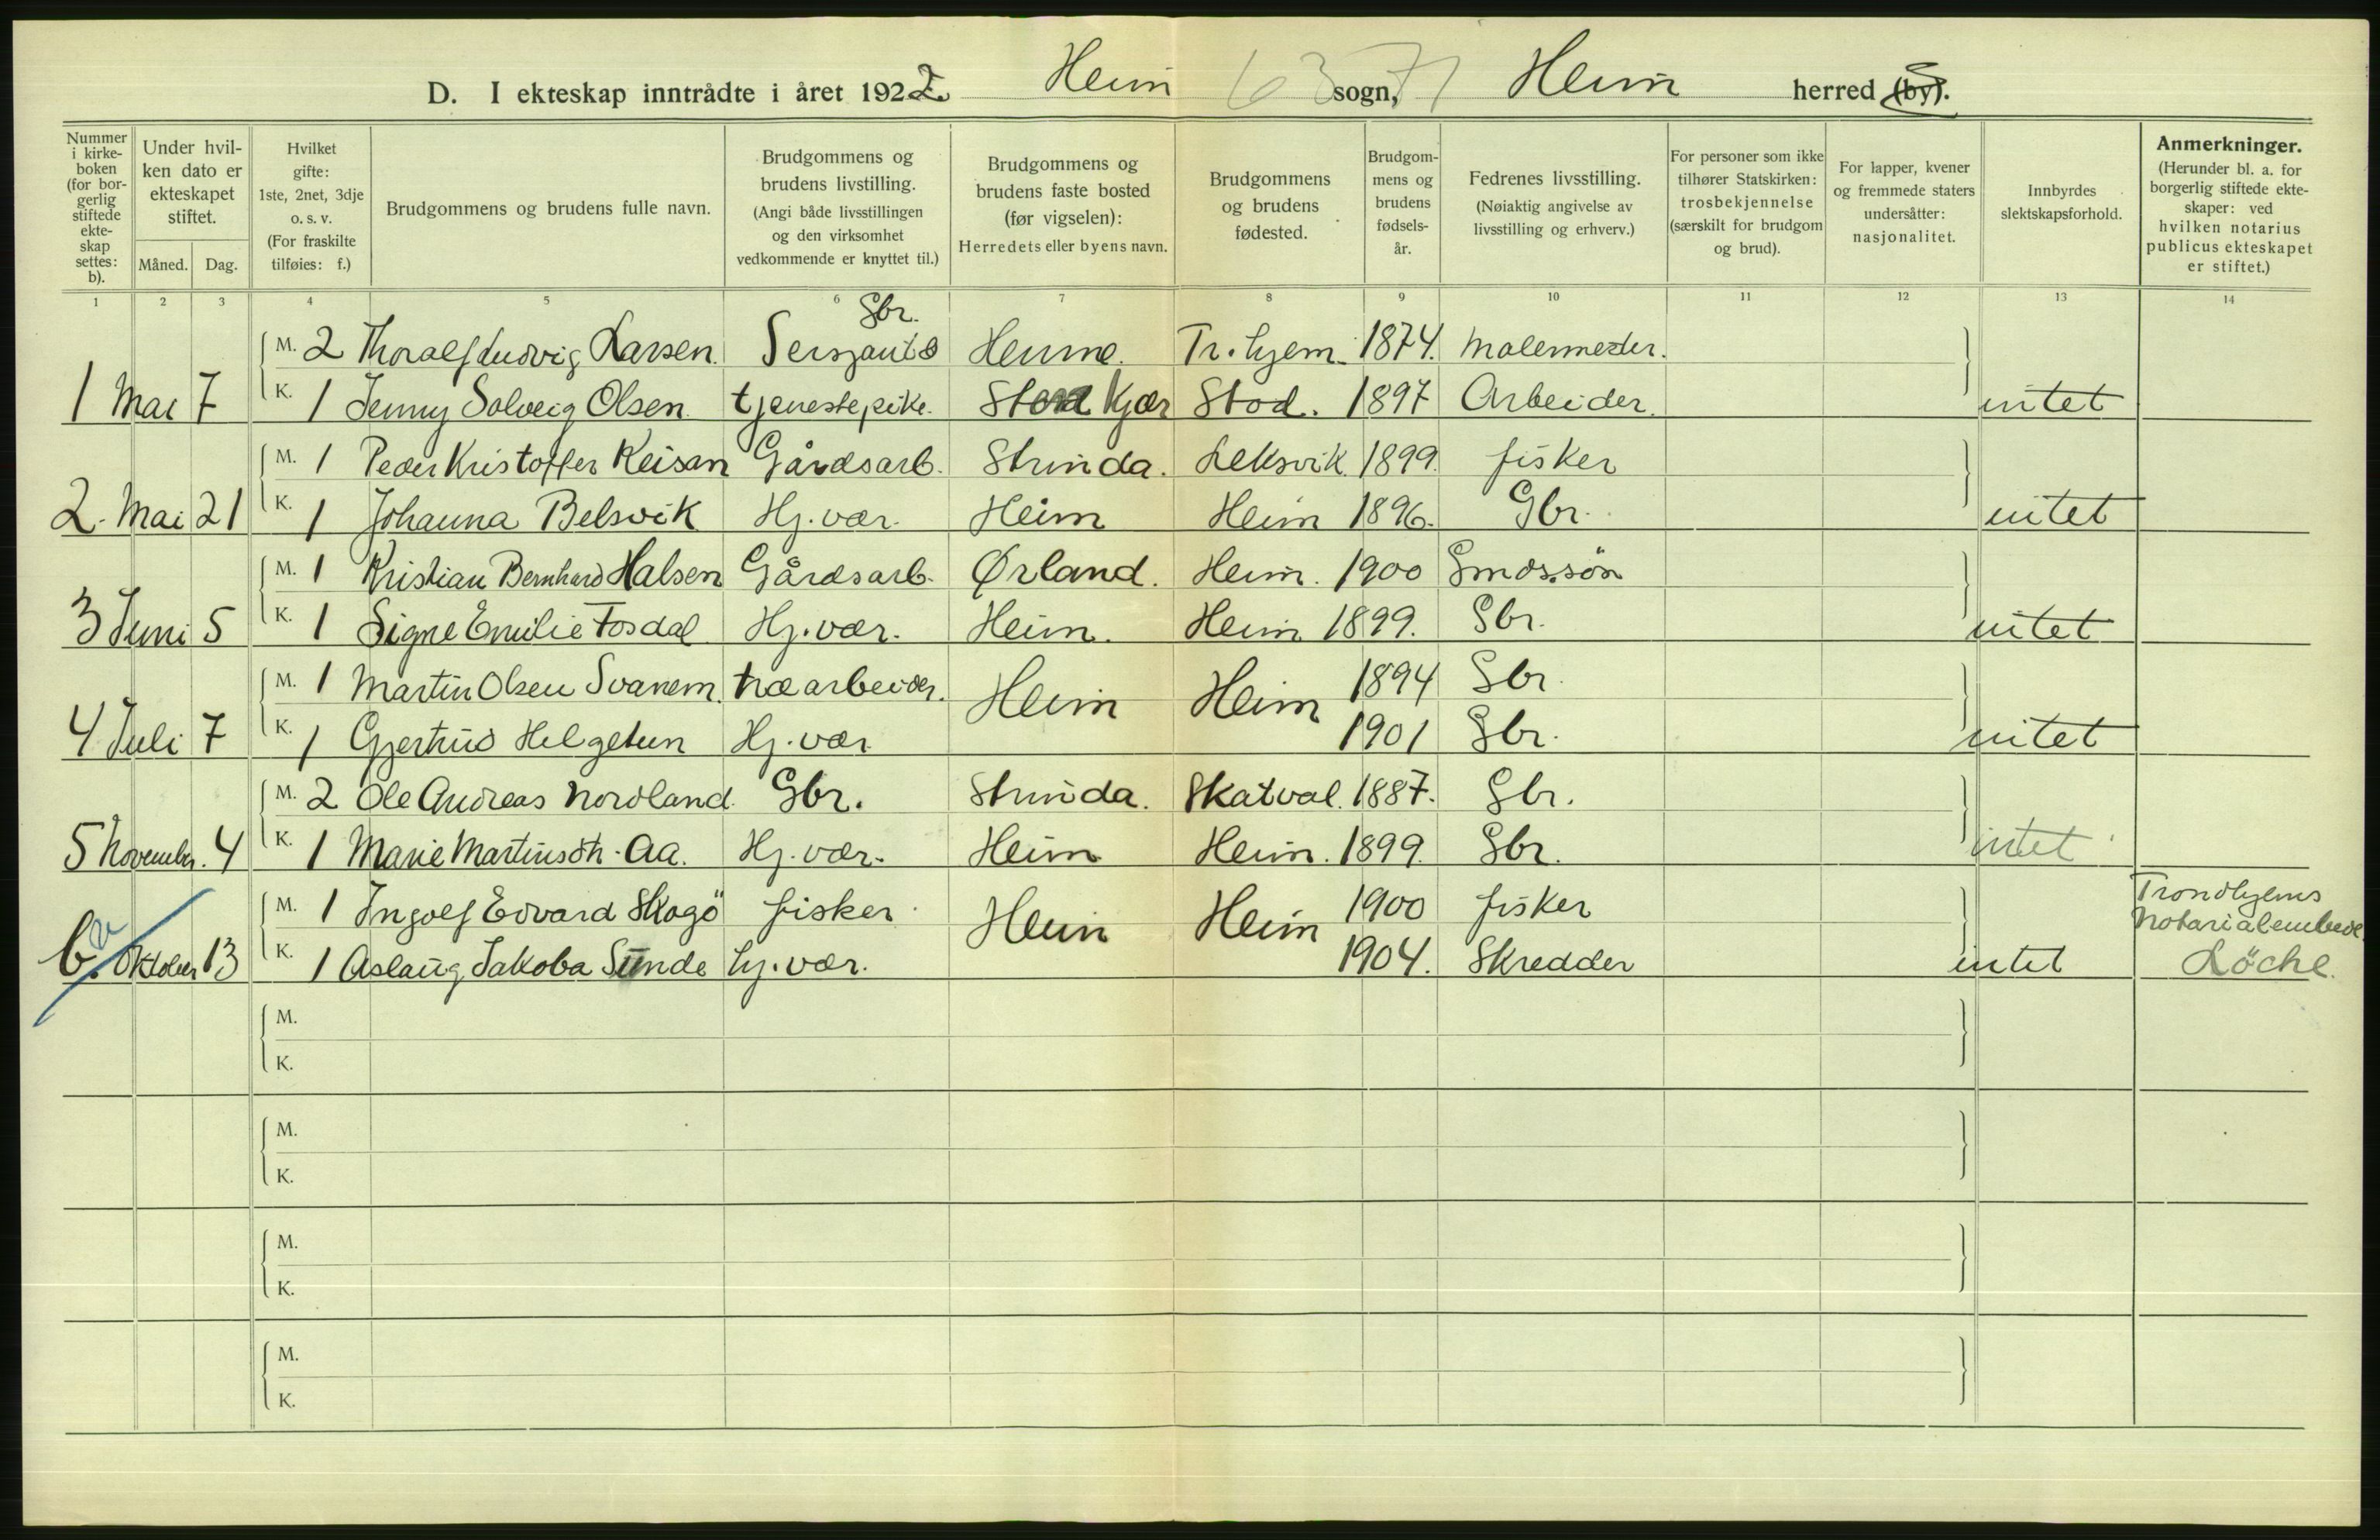 D. I ekteskap inntrådte i året 1922. Heim 63 sogn, 71 Heim herred (by).
Nummer i kirkeboken (for borgerlig stiftede ekteskap settes: b).
Under hvilken dato er ekteskapet stiftet.
Måned. Dag.
Hvilket gifte: 1ste, 2net, 3dje o. s. v. (For fraskilte tilføies: f.)
Brudgommens og brudens fulle navn.
Brudgommens og brudens livstilling. (Angi både livsstillingen og den virksomhet vedkommende er knyttet til.)
Brudgommens og brudens faste bosted (før vigselen): Herredets eller byens navn.
Brudgommens og brudens fødested.
Brudgommens og brudens fødselsår.
Fedrenes livsstilling. (Nøiaktig angivelse av livsstilling og erhverv.)
For personer som ikke tilhører Statskirken: trosbekjennelse (særskilt for brudgom og brud).
For lapper, kvener og fremmede staters undersåtter: nasjonalitet.
Innbyrdes slektskapsforhold.
Anmerkninger. (Herunder bl. a. for borgerlig stiftede ekteskaper: ved hvilken notarius publicus ekteskapet er stiftet.)
1 2 3 4 5 6 7 8 9 10 11 12 13 14
Gbr.
M. 2 Thoralf Ludvig Larsen. Sersjant & Hemne. Tr.hjem. 1874. Malermester.
1 Mai 7 K. 1 Jenny Solveig Olsen. tjenestepike. Stenkjær Stod. 1897 Arbeider. intet
M. 1 Peder Kristoffer Reisan Gårdsarb. Strinda. Leksvik. 1899. fisker
2. Mai 21 K. 1 Johanna Belsvik Hj.vær. Heim Heim 1896. Gbr. intet
M. 1 Kristian Bernhard Halsen Gårdsarb. Ørland. Heim. 1900 Gmdssøn
3 Juni 5 K. 1 Signe Emilie Fosdal Hj.vær. Heim. Heim 1899. Gbr. intet
M. 1 Martin Olsen Svanem. træarbeider. Heim Heim 1894 Gbr.
4 Juli 7 K. 1 Gjertrud Helgetun Hj.vær 1901 Gbr. intet
M. 2 Ole Andreas Nordland. Gbr. Strinda. Skatval. 1887. Gbr.
5 November. 4 K. 1 Marie Martinsdtr. Aa. Hj.vær. Heim Heim. 1899. Gbr. intet
M. 1 Ingolf Edvard Skogö fisker. Heim Heim 1900 fisker Trondhjems Notarialembede
6. Oktober 13 K. 1 Aslaug Jakoba Sunde hj.vær. 1904. Skredder intet Löche.
M.
K.
M.
K.
M.
K.
M.
K.